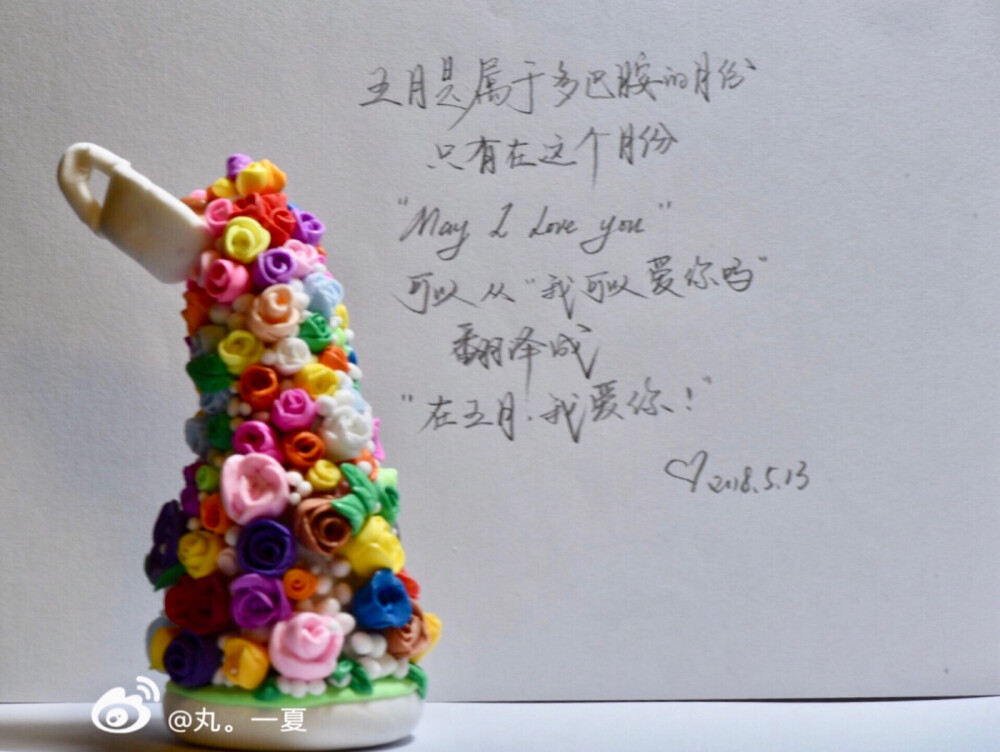 五月是属于多巴胺的月份
只有在这个月份
"May I Love you"
可以从"我可以爱你吗"
翻译成
"在五月.我爱你！"
♡2018.5.13
@丸。一夏